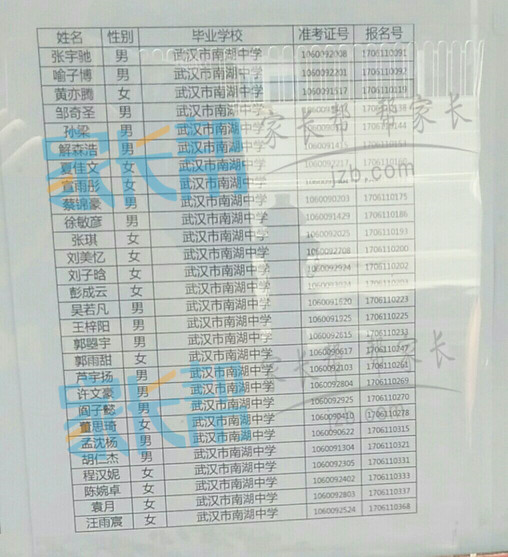 姓名 性别 毕业学校 准考证号 报名号
张宇驰 男 武汉市南湖中学 1060092008 1706110091
喻子博 男 武汉市南湖中学 1060092201 1706110092
黄亦腾 女 武汉市南湖中学 1060091517 1706110119
邹奇圣 男 武汉市南湖中学
孙梁 男 武汉市南湖中学
解森浩 男 武汉市南湖中学
夏佳文 女 武汉市南湖中学
宣雨彤 女 武汉市南湖中学
蔡锦豪 男 武汉市南湖中学 1060090203 1706110175
徐敏彦 男 武汉市南湖中学 1060091429 1706110186
张琪 女 武汉市南湖中学 1060092025 1706110193
刘美忆 女 武汉市南湖中学 1060092708 1706110200
刘子晗 女 武汉市南湖中学 1060092924 1706110202
彭成云 女 武汉市南湖中学
吴若凡 男 武汉市南湖中学 1060091620 1706110223
王梓阳 男 武汉市南湖中学 1060091925 1706110225
郭曌宇 男 武汉市南湖中学 1060092615 1706110233
郭雨甜 女 武汉市南湖中学 1060090617 1706110247
芦宇扬 男 武汉市南湖中学 1060092103 1706110261
许文豪 男 武汉市南湖中学 1060092804 1706110269
阎子懿 男 武汉市南湖中学 1060092925 1706110270
董思琦 女 武汉市南湖中学 1060090410 1706110278
孟沈杨 男 武汉市南湖中学 1060090622 1706110315
胡仁杰 男 武汉市南湖中学 1060091304 1706110321
程汉妮 女 武汉市南湖中学 1060092305 1706110331
陈婉卓 女 武汉市南湖中学 1060092402 1706110333
袁月 女 武汉市南湖中学 1060092803 1706110337
汪雨宸 女 武汉市南湖中学 1060092524 1706110368
家长帮 帮家长
jzb.com
家长帮 帮家长